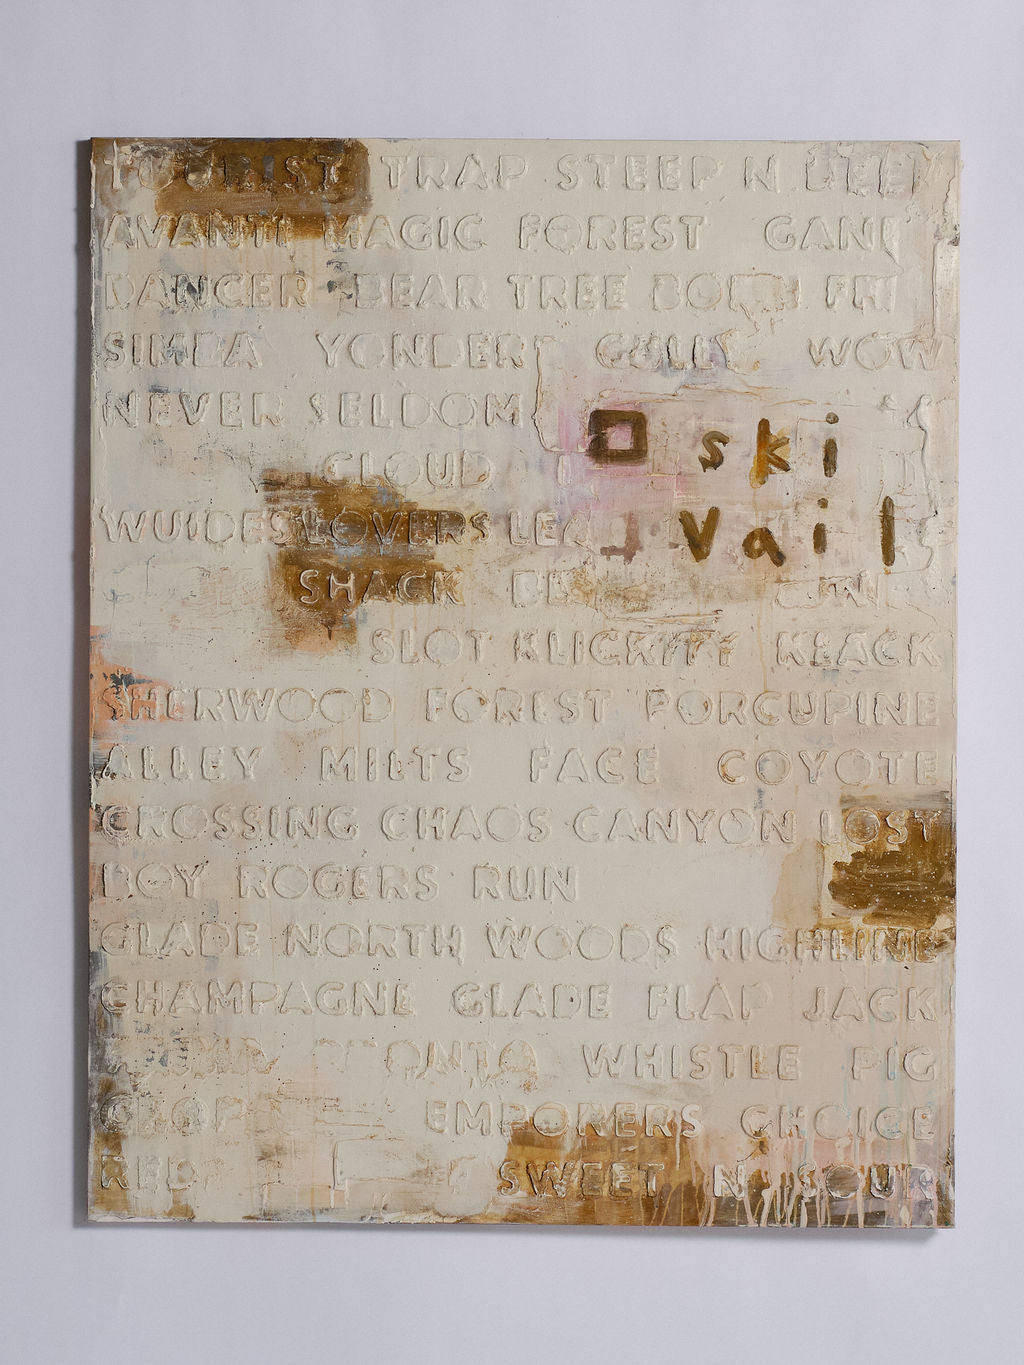 TOURIST TRAP STEEP N DEEP
AVANTI MAGIC FOREST GANE
DANCER BEAR TREE BORN FRE
SIMBA YONDER GULLY WOW
NEVER SELDOM
ski
CLOUD
Vail
WUIDES LOVERS LE
SHACK BE
SLOT KLICKITY KLACK
SHERWOOD FOREST PORCUPINE
ALLEY MILTS FACE COYOTE
CROSSING CHAOS CANYON LOST
BOY ROGERS RUN
GLADE NORTH WOODS HIGHLINE
CHAMPAGNE GLADE FLAP JACK
PRONTO WHISTLE PIG
CHOP EMPORERS CHOICE
RED SWEET N SOUR